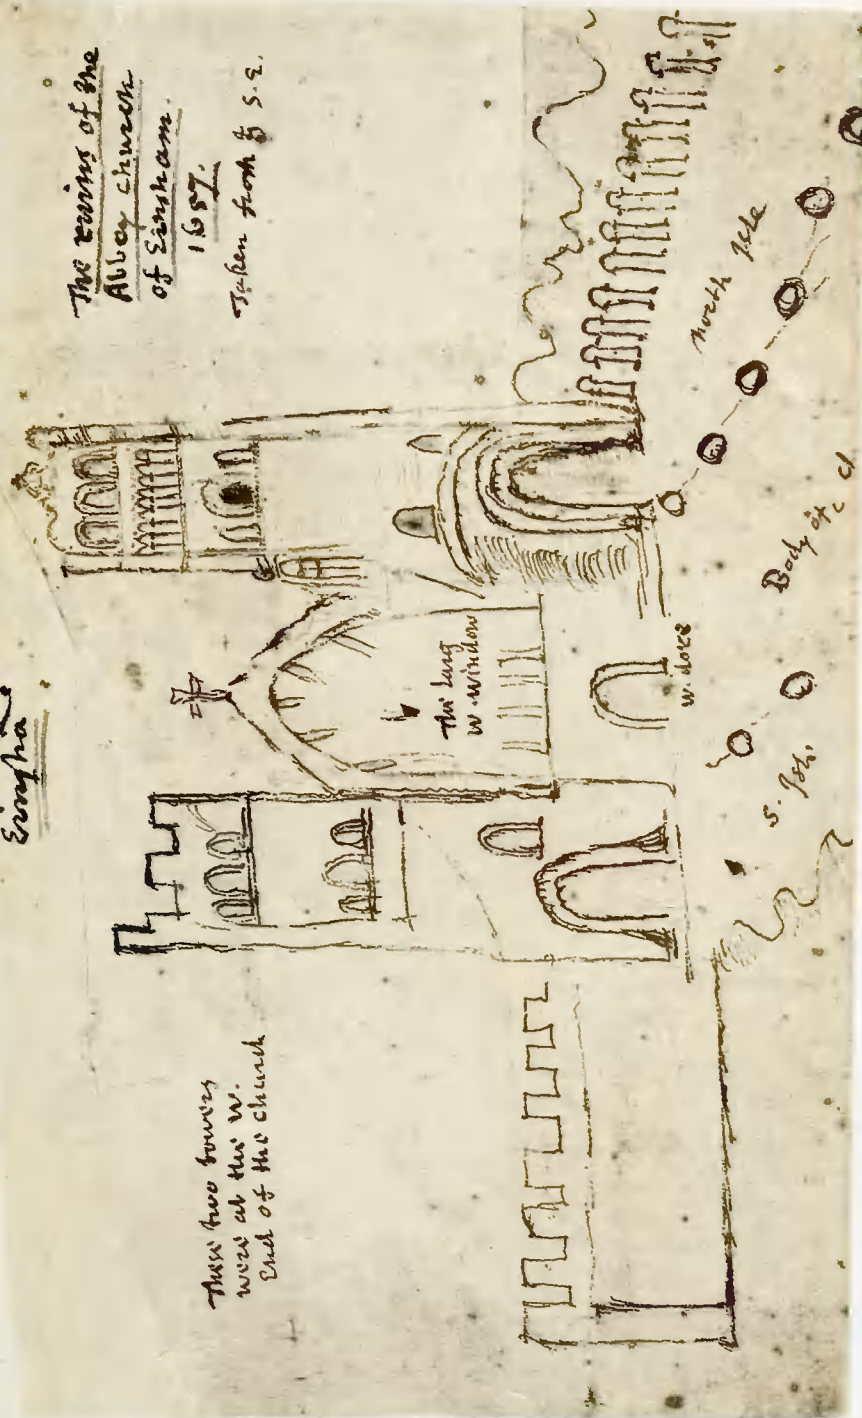 Einshā
The ruins of the
Abbey church
of Einsham.
1657.
Taken from yͤ S.E.
These two towers
were at the W.
End of the church
The larg
W. Window
W. dore
north Isle
Body of
S. Isle.